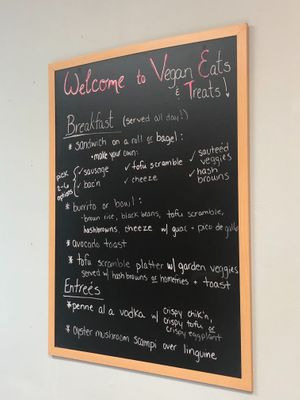 Welcome to Vegan Eats
& Treats!
Breakfast (served all day!)
* sandwich on a roll or bagel:
• make your own:
pick 2-6 options
✓ sausage ✓ tofu scramble ✓ sautéed veggies
✓ bac'n ✓ cheeze ✓ hash browns
* burrito or bowl:
- brown rice, black beans, tofu scramble,
hashbrowns, cheeze w/ guac + pico de gallo
* avocado toast
* tofu scramble platter w/ garden veggies
served w/ hash browns or homefries + toast
Entreés
* penne al a vodka w/ crispy chik'n,
crispy tofu or
crispy eggplant
* oyster mushroom scampi over linguine